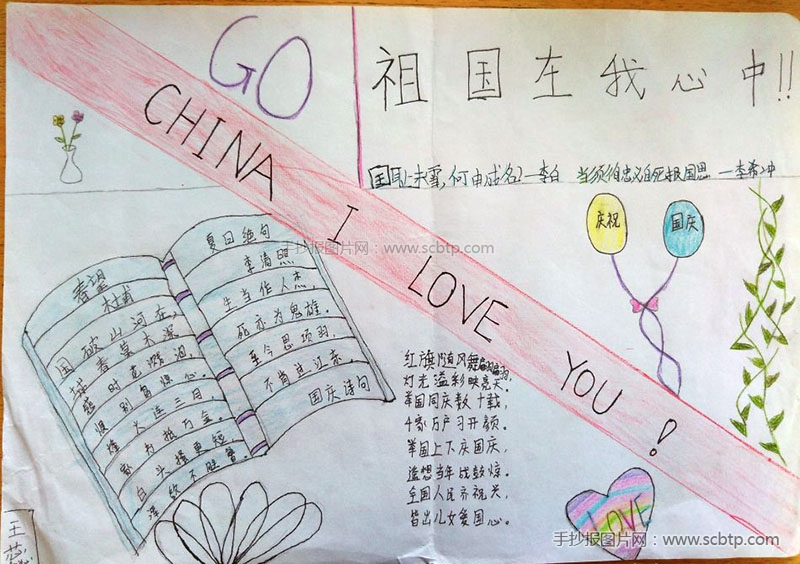 GO
祖国在我心中!!
CHINA I LOVE YOU!
国耻未雪,何由成名?—李白 当须徇忠义,身死报国恩 —李希仲
庆祝
国庆
手抄报图片网:www.scbtp.com
春望
杜甫
国破山河在,
城春草木深
感时花溅泪,
恨别鸟惊心。
烽火连三月,
家书抵万金。
白头搔更短,
浑欲不胜簪。
夏日绝句
李清照
生当作人杰,
死亦为鬼雄。
至今思项羽,
不肯过江东。
国庆诗句
红旗随风舞翩翩,
灯光溢彩映亮天。
举国同庆数十载,
举国上下庆国庆,
遥想当年战鼓惊。
全国人民齐祝兴,
皆出儿女爱国心。
LOVE
王
手抄报图片网:www.scbtp.com